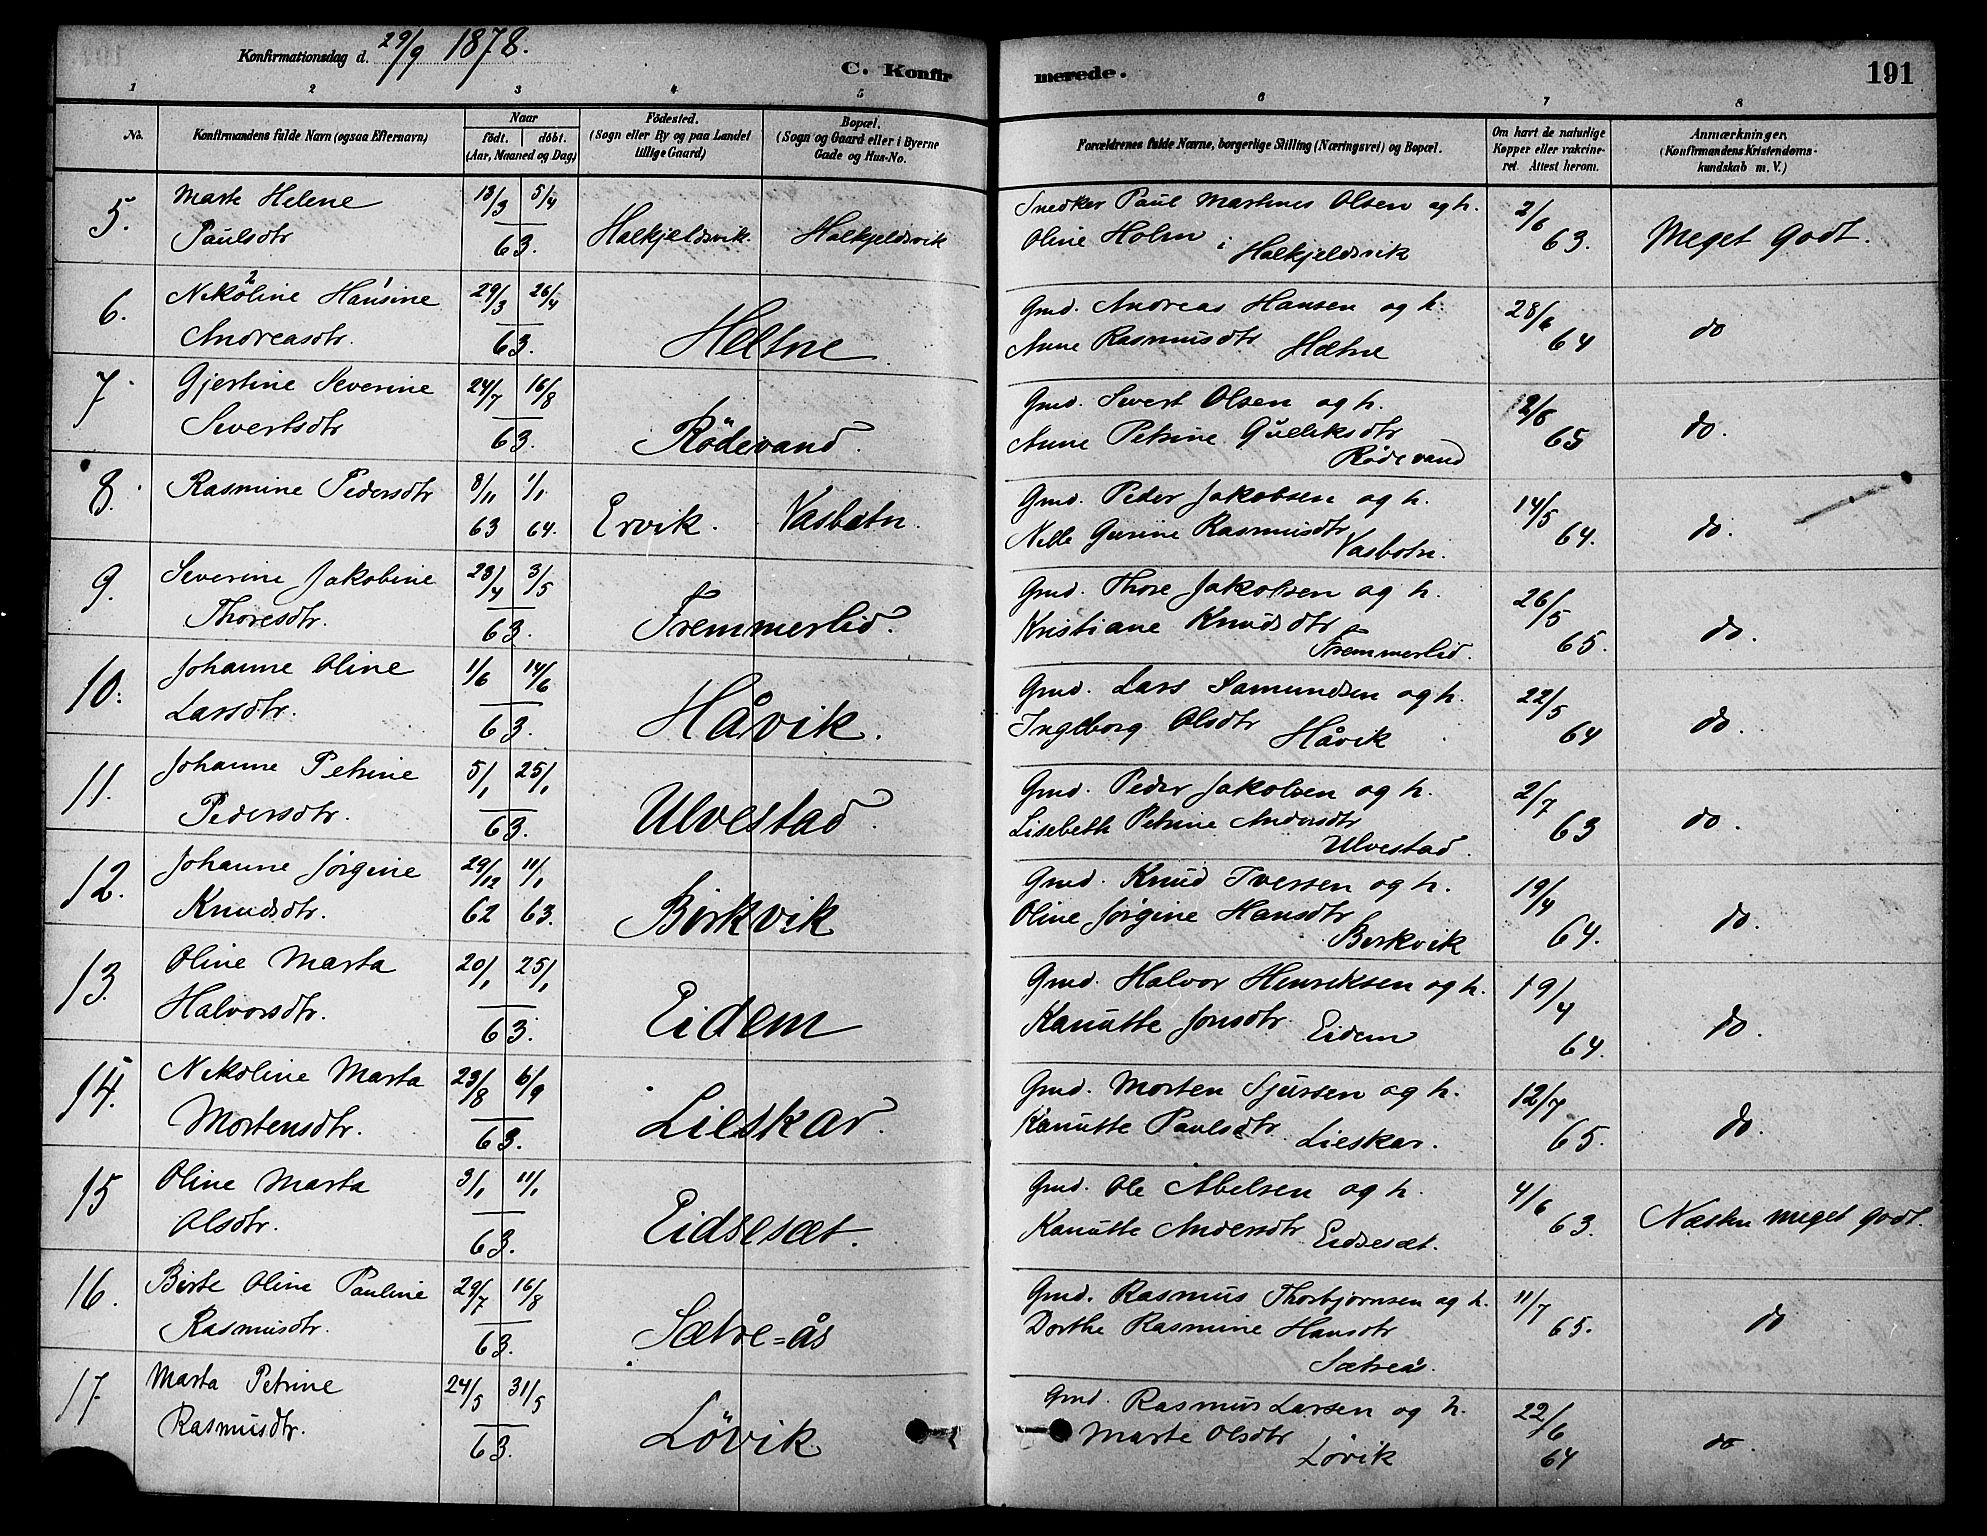 Konfirmationsdag d. 29/9 1878.
C. Konfirmerede.
191
1 2 3 4 5 6 7 8
No.
Konfirmandens fulde Navn (ogsaa Efternavn)
Naar
födt. döbt.
(Aar, Maaned og Dag)
Födested.
(Sogn eller By og paa Landet
tillige Gaard)
Bopæl.
(Sogn og Gaard eller i Byerne
Gade og Hus-No.
Forældrenes fulde Navne, borgerlige Stilling (Næringsvei) og Bopæl.
Om havt de naturlige
Kopper eller vakcine-
ret. Attest herom.
Anmærkninger,
(Konfirmandens Kristendoms-
kundskab m. V.)
5. Marte Helene 13/3 5/4 Snedker Paul Martines Olsen og h. 2/6
Paulsdtr 63. Halkjeldsvik. Halkjeldsvik Oline Holm i Halkjeldsvik 63. Meget Godt.
6. Nikoline 2 Hansine 1 29/3 26/4 Gmd. Andreas Hansen og h. 28/6
Andreasdtr. 63. Heltne Anne Rasmusdtr Hæltne 64 do
7. Gjertine Severine 24/7 16/8 Gmd. Sivert Olsen og h. 2/6
Sivertsdtr 63. Rödevand. Anne Petrine Gulliksdtr 65 do.
Rödevand
8. Rasmine Pedersdtr 8/11 1/1 Gmd. Peder Jakobsen og h. 14/5
63 64. Ervik. Vasbotn. Nille Gurine Rasmusdtr Vasbotn. 64. do.
9. Severine Jakobine 23/4 3/5 Gmd. Thore Jakobsen og h. 26/5
Thoresdtr. 63. Fremmerlid. Kristiane Knudsdtr 65. do.
Fremmerlid.
10. Johanne Oline 1/6 14/6 Gmd. Lars Samundsen og h. 22/5
Larsdtr. 63. Håvik. Ingeborg Olsdtr Håvik 64 do.
11. Johanne Petrine 5/1 25/1 Gmd. Peder Jakobsen og h. 2/7
Pedersdtr. 63. Ulvestad. Lisebeth Petrine Andersdtr 63 do.
Ulvestad.
12. Johanne Jørgine 29/12 11/1 Gmd. Knud Iversen og h. 19/4
Knudsdtr. 62 63. Birkvik Oline Jørgine Hansdtr 64. do.
Birkvik
13. Oline Marta 20/1 25/1 Gmd. Halvor Henriksen og h. 19/4
Halvorsdtr. 63. Eidem Kanutte Jonsdtr Eidem 64. do.
14. Nikoline Marta 23/8 6/9 Gmd. Morten Sjursen og h. 12/7
Mortensdtr. 63. Lieskar. Kanutte Paulsdtr Lieskar. 65. do.
15 Oline Marta 3/1 11/1 Gmd. Ole Abelsen og h. 4/6
Olsdtr. 63. Eidsesæt. Kanutte Andersdtr Eidsesæt. 63. Næsten meget godt.
16. Birte Oline Pauline 29/7 16/8 Gmd. Rasmus Thorbjørnsen og h. 11/7
Rasmusdtr. 63. Sætre=ås Dorthe Rasmine Hansdtr 65. do
Sætreås.
17. Marta Petrine 24/5 31/5 Gmd. Rasmus Larsen og h. 22/6
Rasmusdtr. 63. Lövik Marte Olsdtr Lövik 64 do.